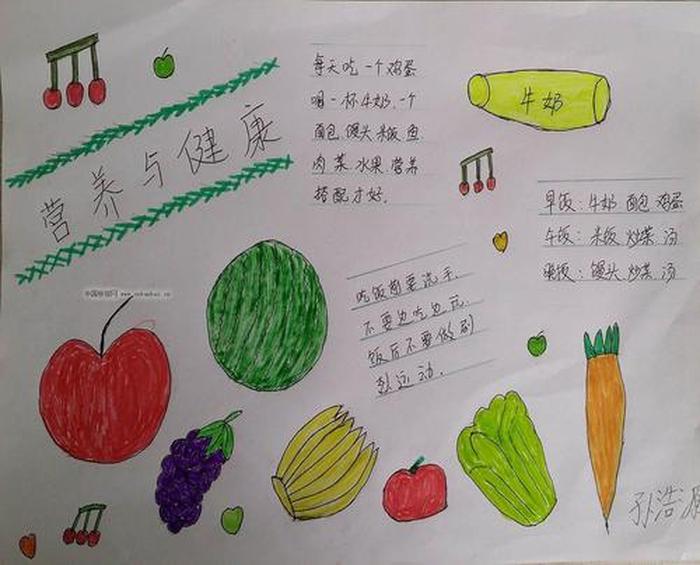 营养与健康
每天吃一个鸡蛋
喝一杯牛奶.一个
面包.馒头.米饭.鱼.
肉.菜.水果.营养
搭配才好.
牛奶
早饭：牛奶.面包.鸡蛋
午饭：米饭.炒菜.汤
晚饭：馒头.炒菜.汤
吃饭前要洗手.
不要边吃边玩.
饭后不要做剧
烈运动.
孙浩